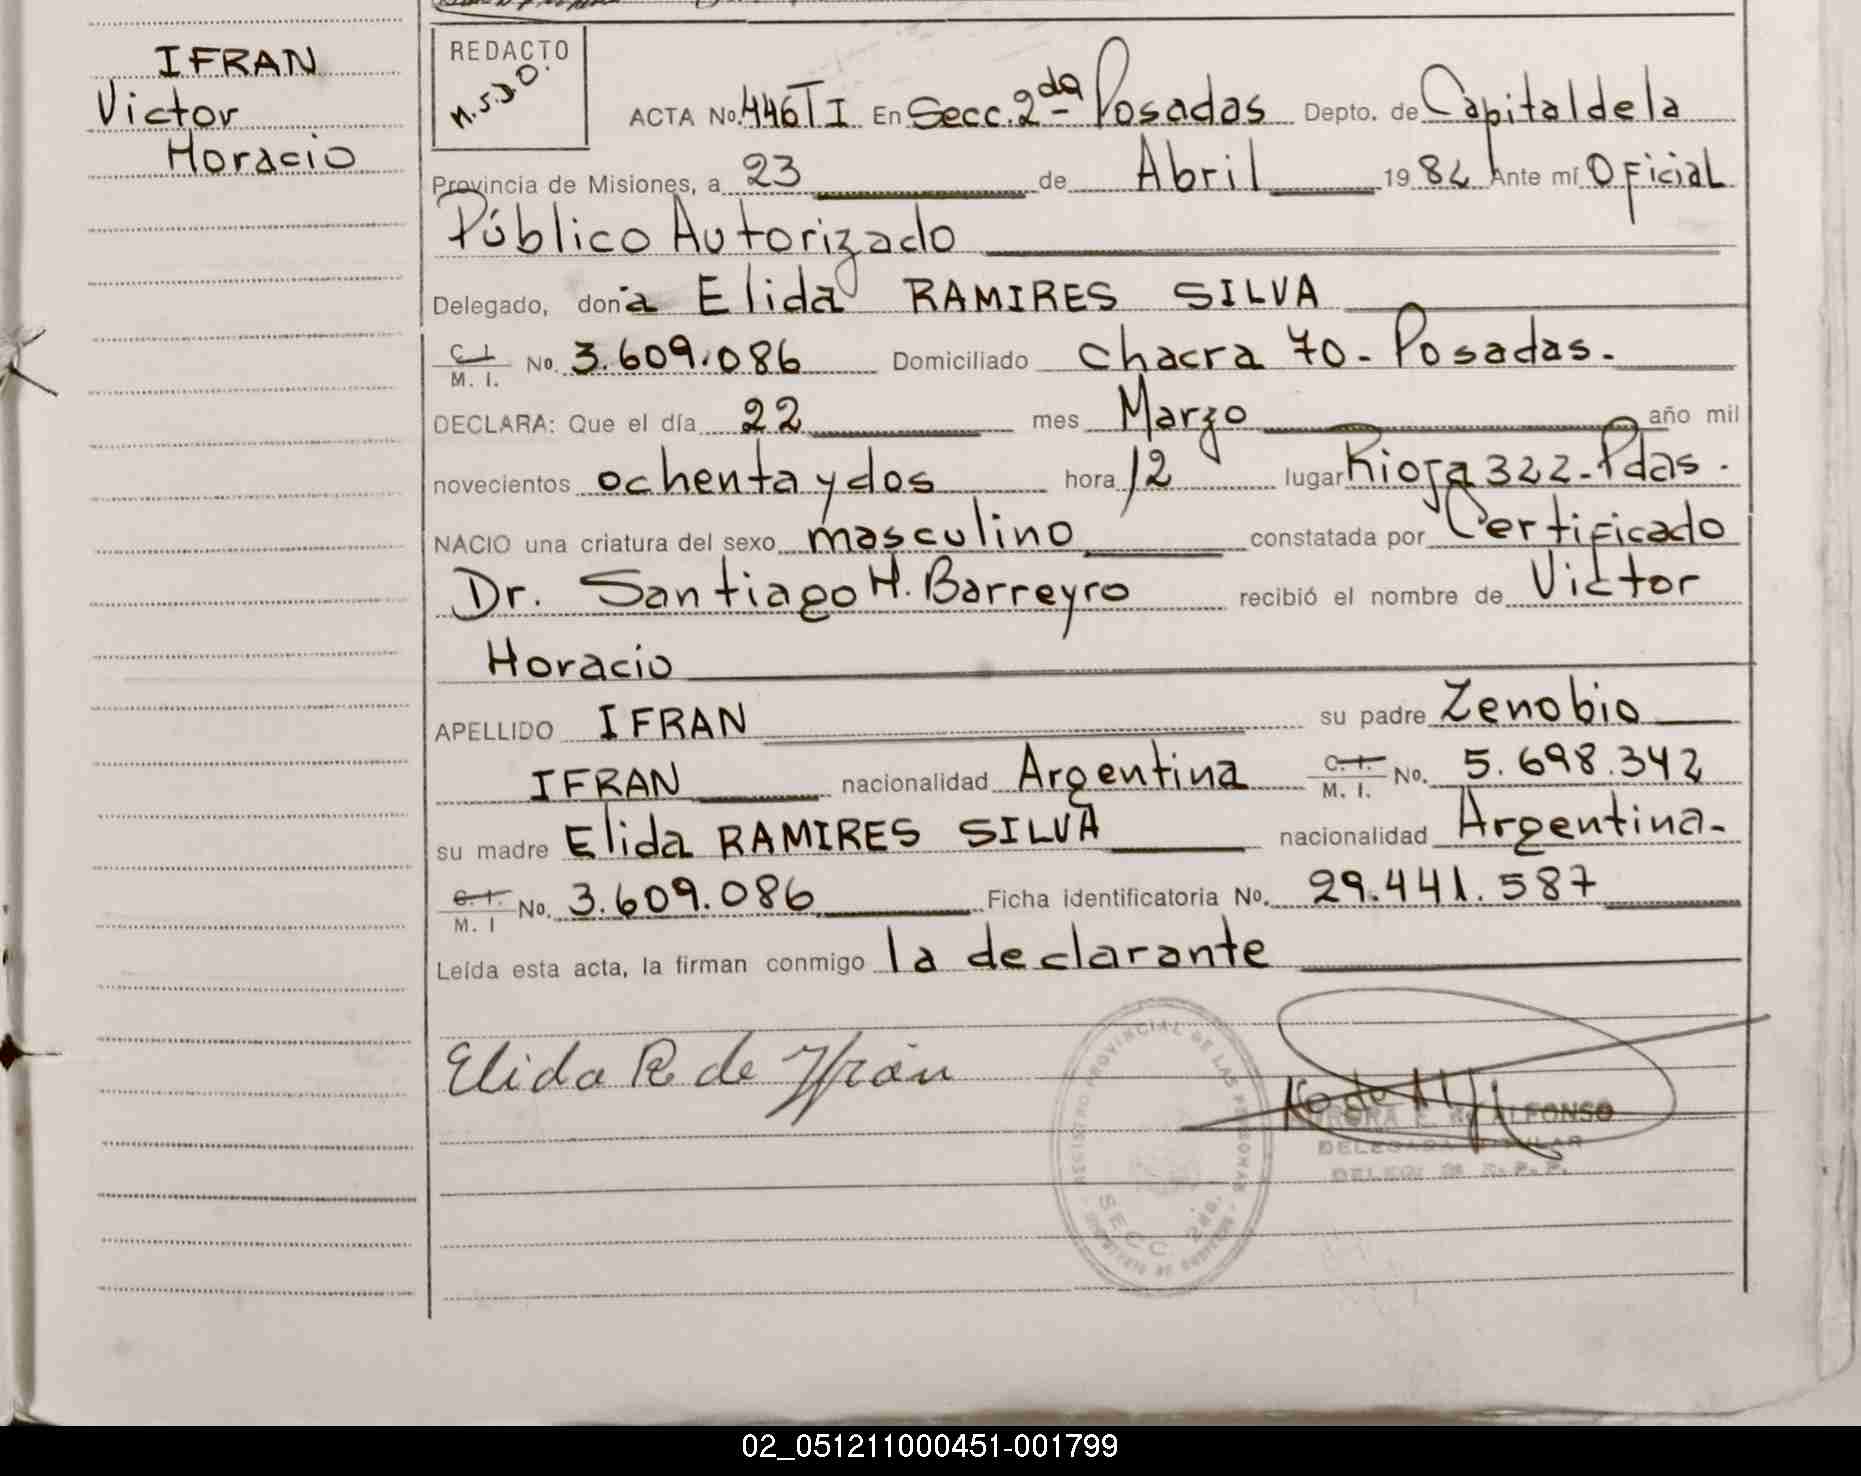 IFRAN
Victor
Horacio
REDACTO
M.S.J.O.
ACTA No. 446 TI En Secc. 2da Posadas Depto. de Capital de la
Provincia de Misiones, a 23 de Abril 1982 Ante mí Oficial
Público Autorizado
Delegado, doña Elida RAMIRES SILVA
C. I. M. I. No. 3.609.086 Domiciliado Chacra 70 - Posadas.
DECLARA: Que el día 22 mes Marzo año mil
novecientos ochenta y dos hora 12 lugar Rioja 322 - Pdas.
NACIO una criatura del sexo masculino constatada por Certificado
Dr. Santiago H. Barreyro recibió el nombre de Victor
Horacio
APELLIDO IFRAN su padre Zenobio
IFRAN nacionalidad Argentina C. I. M. I. No. 5.698.342
su madre Elida RAMIRES SILVA nacionalidad Argentina.
C. I. M. I No. 3.609.086 Ficha identificatoria No. 29.441.587
Leída esta acta, la firman conmigo la declarante
Elida R. de Ifrán
REGISTRO PROVINCIAL DE LAS PERSONAS
SECC. 2da.
ALFONSO
DELEGADA TITULAR
02_051211000451-001799